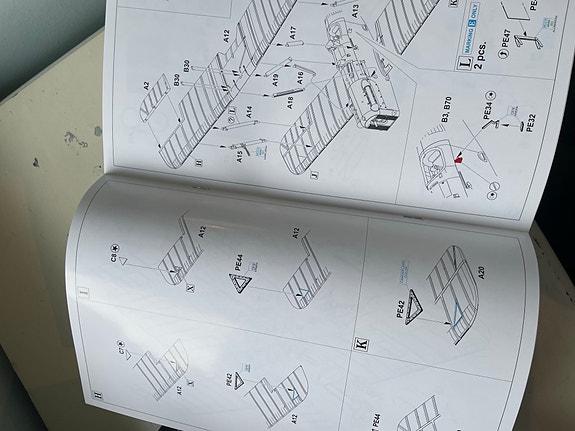 A2
B30
B30
A12
A17
A13
A19
A16
A18
L
A14
A15
H
J
K
L MARKING D ONLY
2 pcs.
PE47
PE
B3, B70
PE34
PE32
I
C8
A12
X
PE44
A12
H
C7
A12
X
PE42
A12
K
PE42
A20
PE44